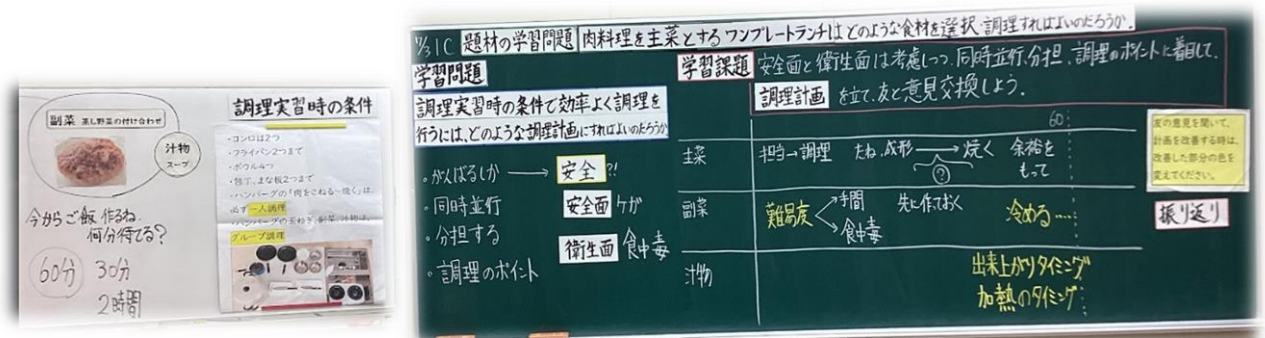 副菜 蒸し野菜の付け合わせ
汁物
スープ
今からご飯作るね.
何分待てる?
60分 30分
2時間
調理実習時の条件
・コンロは2つ
・フライパン2つまで
・ボウル4つ
・包丁、まな板2つまで
・ハンバーグの「肉をこねる~焼く」は、
必ず一人調理
・ハンバーグの玉ねぎ、副菜、汁物は、
グループ調理
7/3 1C 題材の学習問題 肉料理を主菜とするワンプレートランチはどのような食材を選択・調理すればよいのだろうか.
学習問題
調理実習時の条件で効率よく調理を
行うには、どのような調理計画にすればよいのだろうか
・がんばるしか → 安全?!
・同時並行 安全面 ケガ
・分担する 衛生面 食中毒
・調理のポイント
学習課題 安全面と衛生面は考慮しつつ、同時並行、分担、調理のポイントに着目して、
調理計画 を立て、友と意見交換しよう.
60
主菜 担当→調理 たね、成形 → 焼く 余裕を
もって
?
副菜 難易度 手間 先に作っておく 冷める……
食中毒
汁物 出来上がりタイミング
加熱のタイミング
友の意見を聞いて、
計画を改善する時は、
改善した部分の色を
変えてください。
振り返り